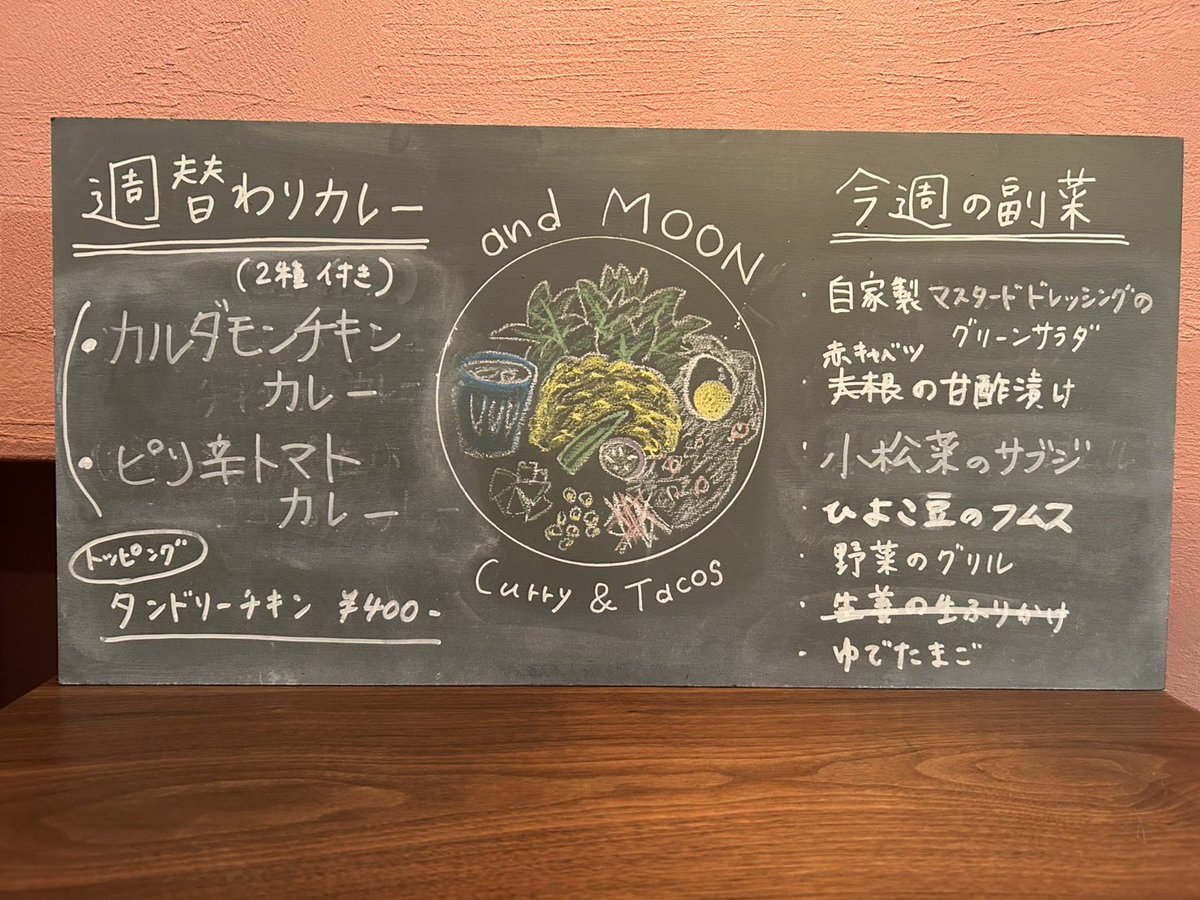 週替わりカレー
(2種付き)
・カルダモンチキン
カレー
・ピリ辛トマト
カレー
トッピング
タンドリーチキン ¥400-
and MOON
Curry & Tacos
今週の副菜
・自家製マスタードドレッシングの
グリーンサラダ
赤キャベツ
・大根の甘酢漬け
・小松菜のサブジ
・ひよこ豆のフムス
・野菜のグリル
・生姜の生ふりかけ
・ゆでたまご